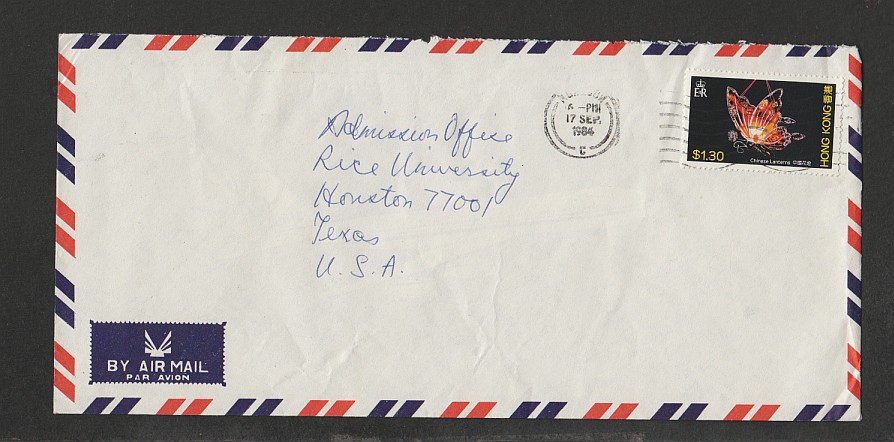 Admission Office
Rice University
Houston 77001
Texas
U. S. A.
6 - PM
17 SEP.
1984
C
E R
$1.30
Chinese Lanterns 中國花燈
HONG KONG 香港
BY AIR MAIL
PAR AVION